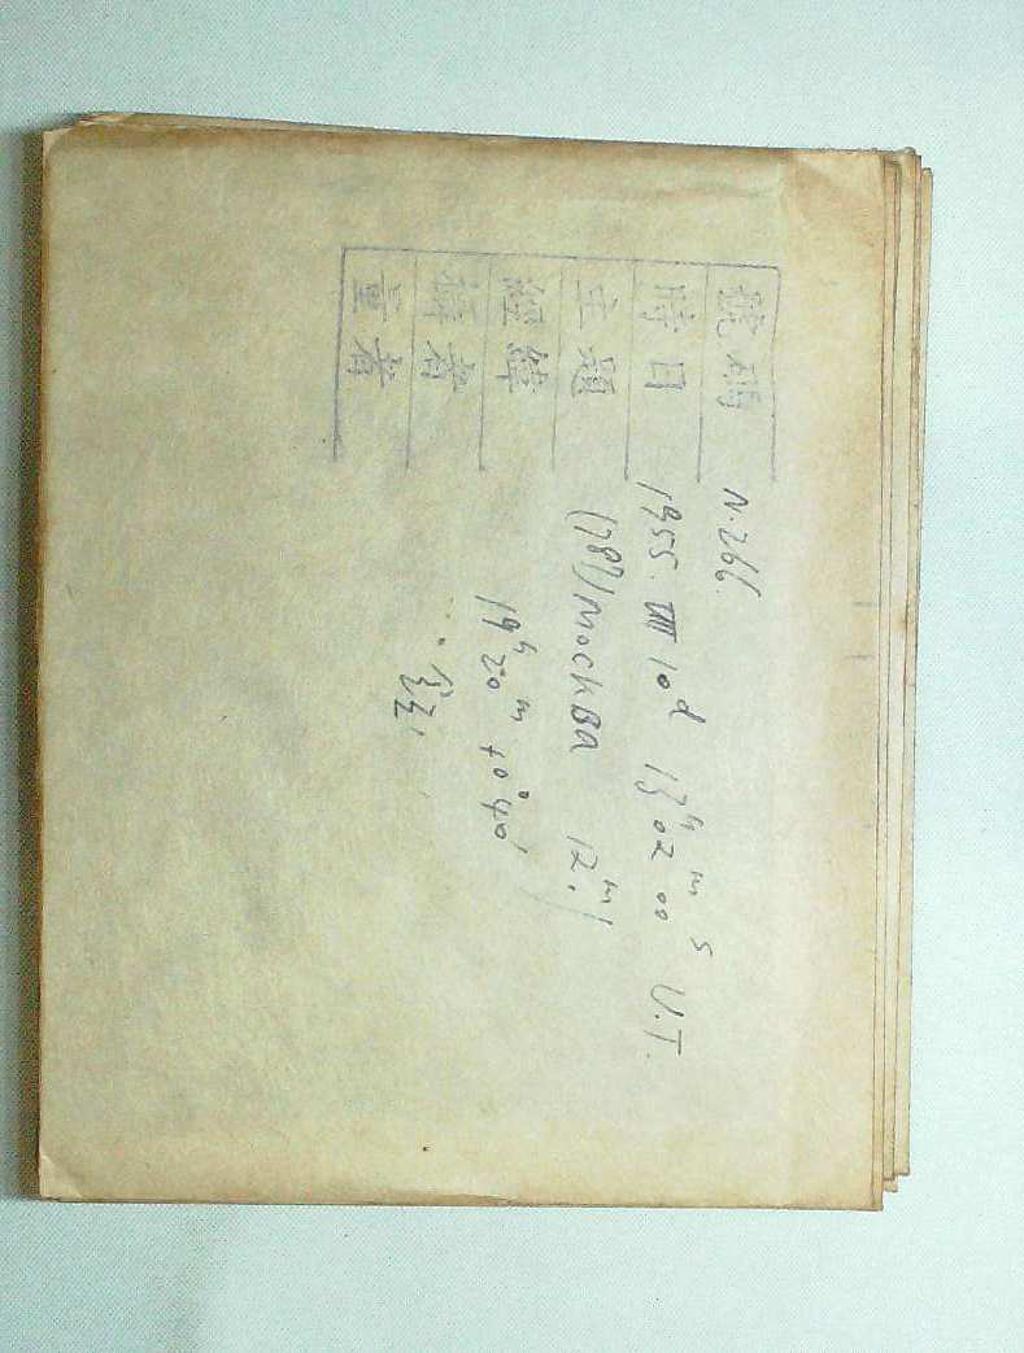 號碼 N.266.
時日 1955. VIII 10ᵈ 13ʰ02ᵐ00ˢ U.T.
主題 (787) Москва 12.ᵐ1
經緯 19ʰ20ᵐ +0°40′
者
量者